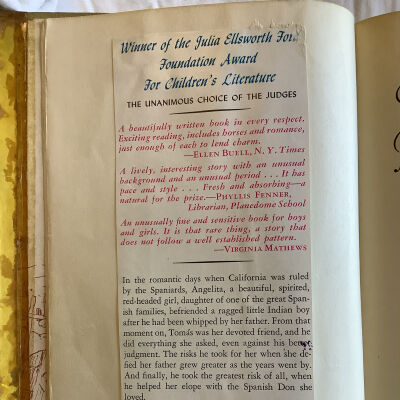 Winner of the Julia Ellsworth Ford
Foundation Award
For Children's Literature
THE UNANIMOUS CHOICE OF THE JUDGES
A beautifully written book in every respect.
Exciting reading, includes horses and romance,
just enough of each to lend charm.
—ELLEN BUELL, N. Y. Times
A lively, interesting story with an unusual
background and an unusual period . . . It has
pace and style . . . Fresh and absorbing—a
natural for the prize.—PHYLLIS FENNER,
Librarian, Planedome School
An unusually fine and sensitive book for boys
and girls. It is that rare thing, a story that
does not follow a well established pattern.
—VIRGINIA MATHEWS
In the romantic days when California was ruled
by the Spaniards, Angelita, a beautiful, spirited,
red-headed girl, daughter of one of the great Span-
ish families, befriended a ragged little Indian boy
after he had been whipped by her father. From that
moment on, Tomás was her devoted friend, and he
did everything she asked, even against his better
judgment. The risks he took for her when she de-
fied her father grew greater as the years went by.
And finally, he took the greatest risk of all, when
he helped her elope with the Spanish Don she
loved.